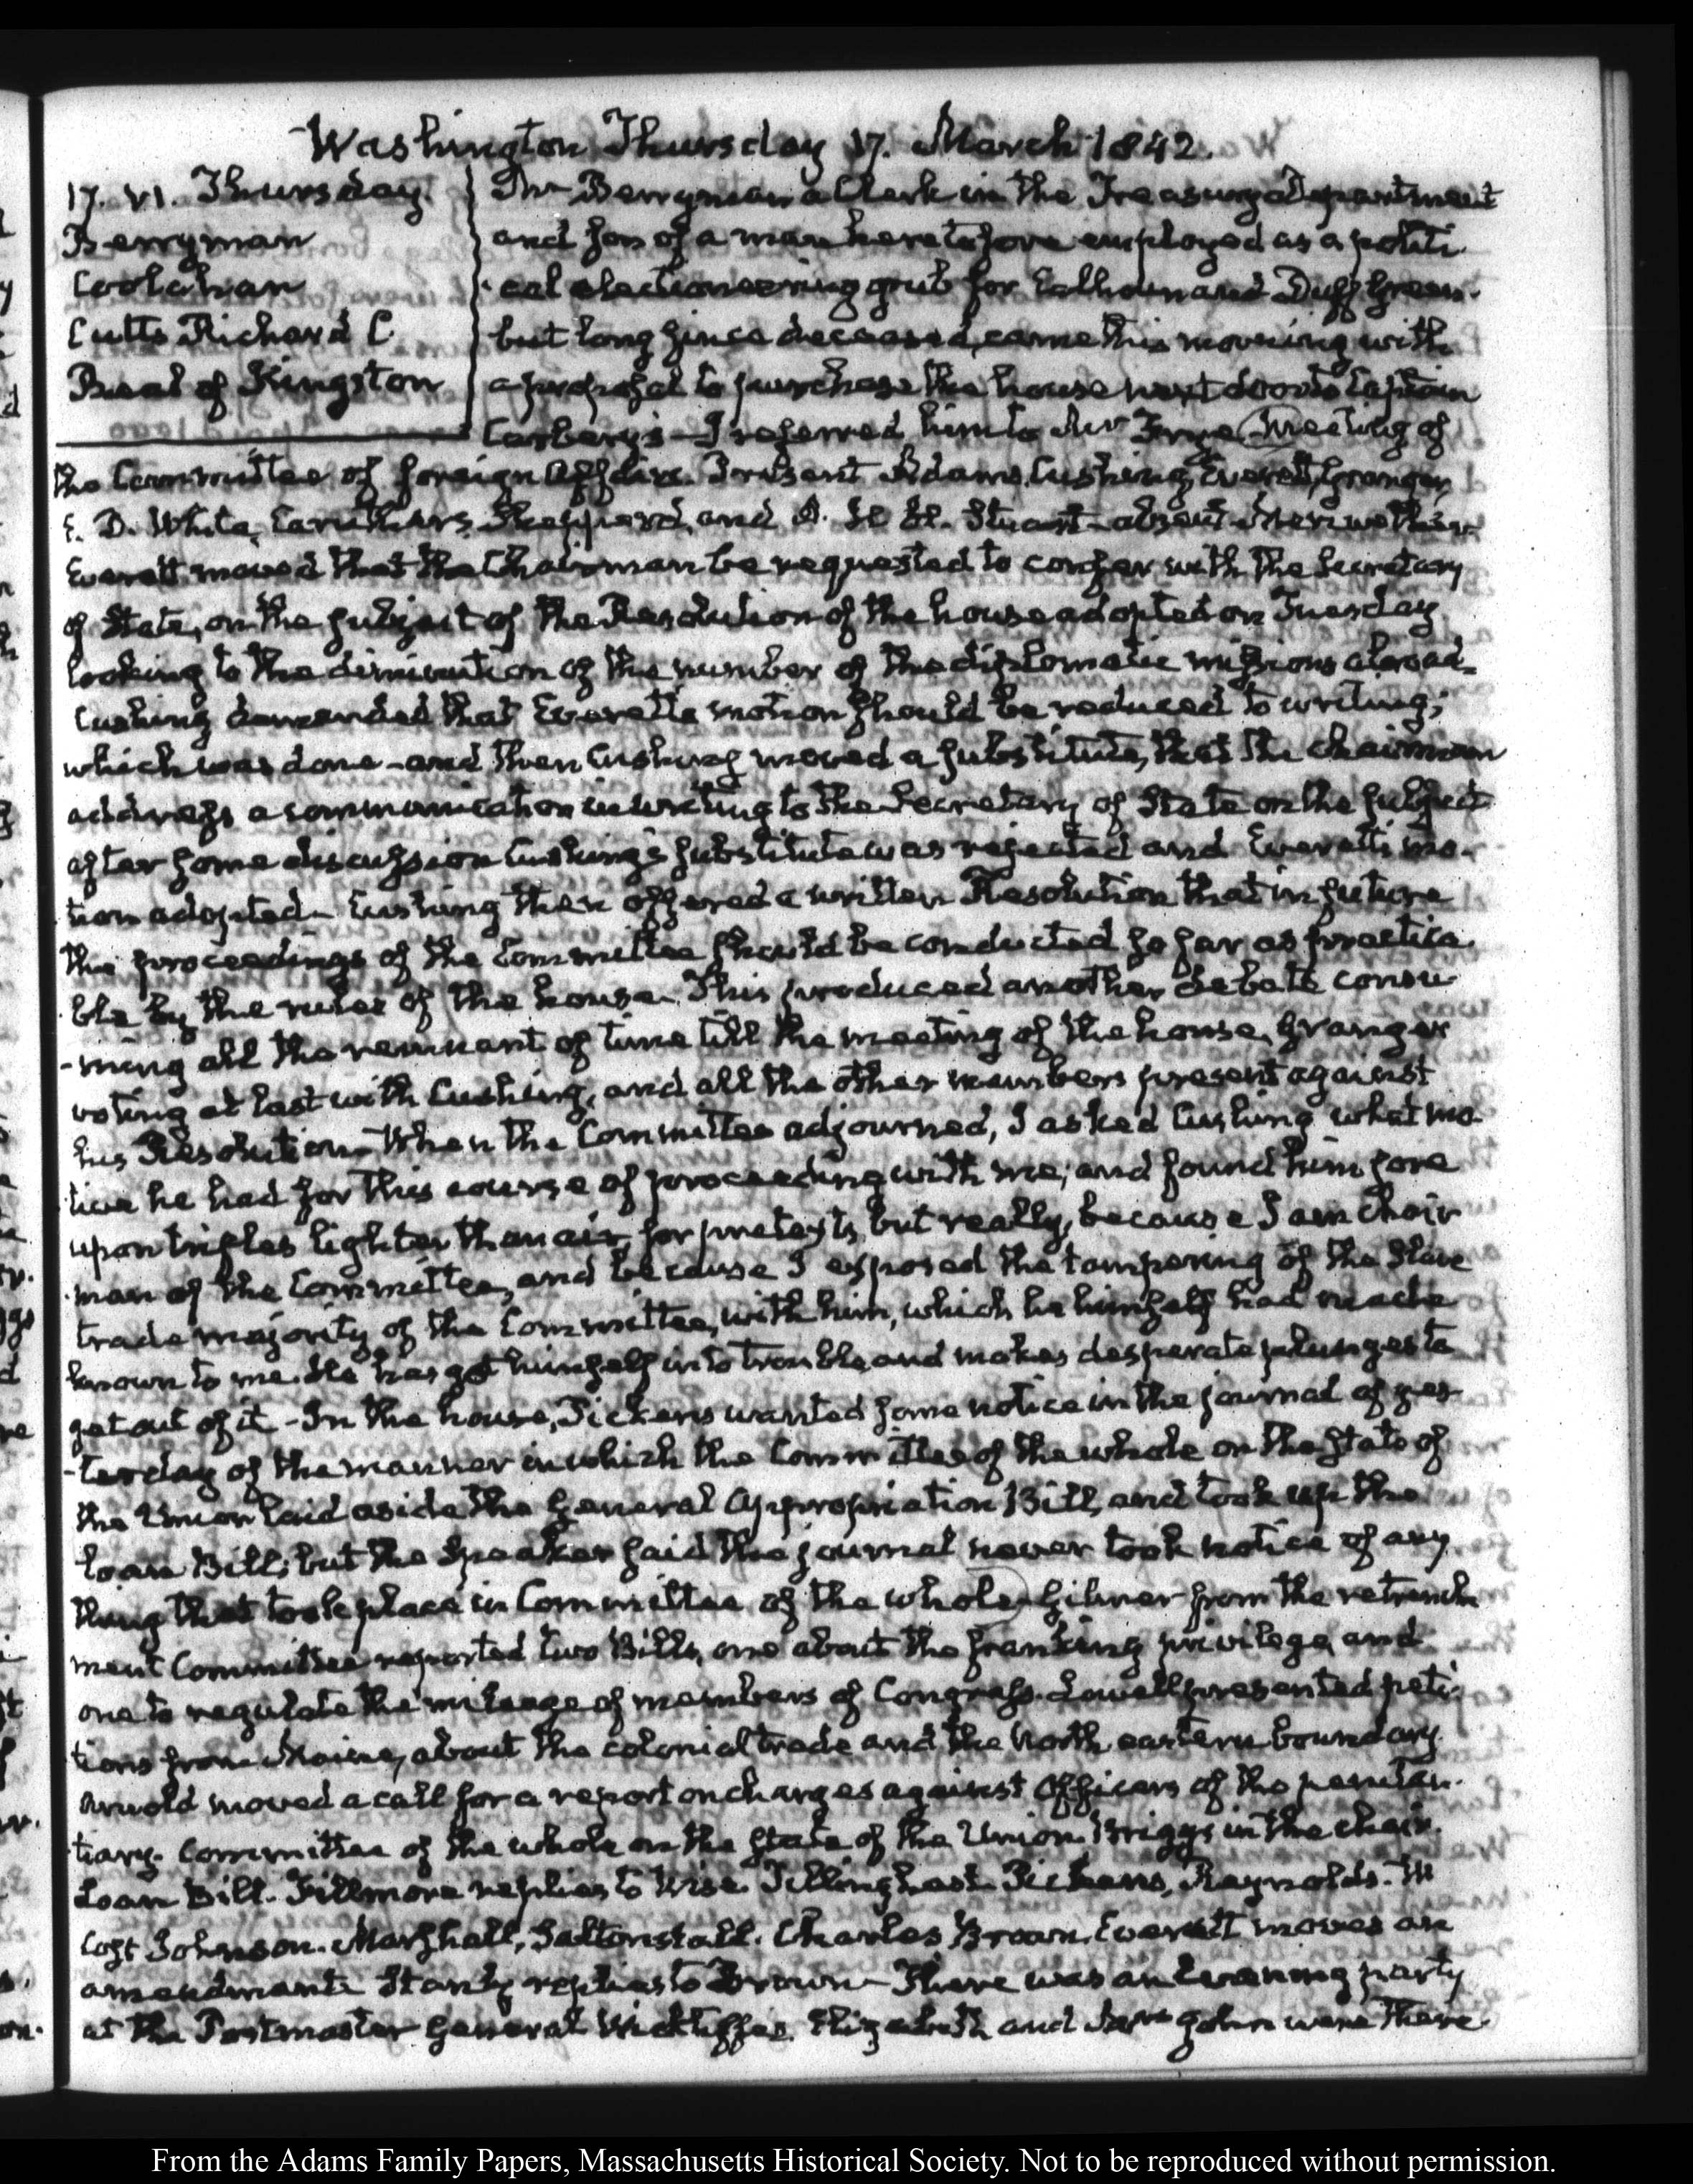 Washington Thursday 17. March 1842.
17. VI. Thursday.
Berryman
Coolahan
Cutts Richard C.
Beal of Kingston
Mr Berryman a Clerk in the Treasury Department
and son of a man heretofore employed as a politi-
cal electioneering for Calhoun and Duff Green.
but long since deceased, came this morning with
a proposal to purchase the house next door to Captain
Carbery's— I referred him to Mr Frye— Meeting of
the Committee of foreign Affairs. Present Adams, Cushing, Everett, Granger,
E. D. White, Caruthers, Shepperd, and A. H. H. Stuart— absent
Everett moved that the Chairman be requested to confer with the Secretary
of State, on the subject of the Resolution of the house adopted on Tuesday
looking to the diminution of the number of the diplomatic missions abroad—
Cushing demanded that Everett's motion should be reduced to writing;
which was done—and then Cushing moved a substitute, that the Chairman
address a communication in writing to the Secretary of State on the subject
after some discussion Cushing's substitute was rejected and Everett's mo-
tion adopted— Cushing then offered a written Resolution that in future
the proceedings of the Committee should be conducted so far as practica-
ble by the rules of the house. This produced another debate consu-
-ming all the remnant of time till the meeting of the house, Granger
voting at last with Cushing, and all the other members present against
his Resolution— When the Committee adjourned, I asked Cushing what mo-
tive he had for this course of proceeding with me; and found him sore
upon trifles lighter than air for pretexts, but really, because I am Chair-
man of the Committee, and because I exposed the tampering of the Slave
trade majority of the Committee, with him, which he himself had made
known to me. He has got himself into trouble, and makes desperate plunges to
get out of it— In the house, Pickens wanted some notice in the journal of yes-
-terday of the manner in which the Committee of the whole on the state of
the Union laid aside the General Appropriation Bill, and took up the
Loan Bill; but the Speaker said the journal never took notice of any
thing that took place in Committee of the whole— Gilmer from the retrench-
ment Committee reported two Bills, one about the franking privilege, and
one to regulate the mileage of members of Congress. Lowell presented peti-
tions from Maine, about the colonial trade and the North eastern boundary.
Arnold moved a call for a report on charges against Officers of the peniten-
tiary. Committee of the whole on the state of the Union. Briggs in the chair.
Loan Bill. Fillmore replies to Wise. Tillinghast. Pickens, Reynolds. W
Cost Johnson. Marshall, Saltonstall. Charles Brown. Everett moves an
amendment. Stanly replies to Brown— There was an Evening party
at the Postmaster General Wickliffe's. Elizabeth and Mrs John were there.
From the Adams Family Papers, Massachusetts Historical Society. Not to be reproduced without permission.